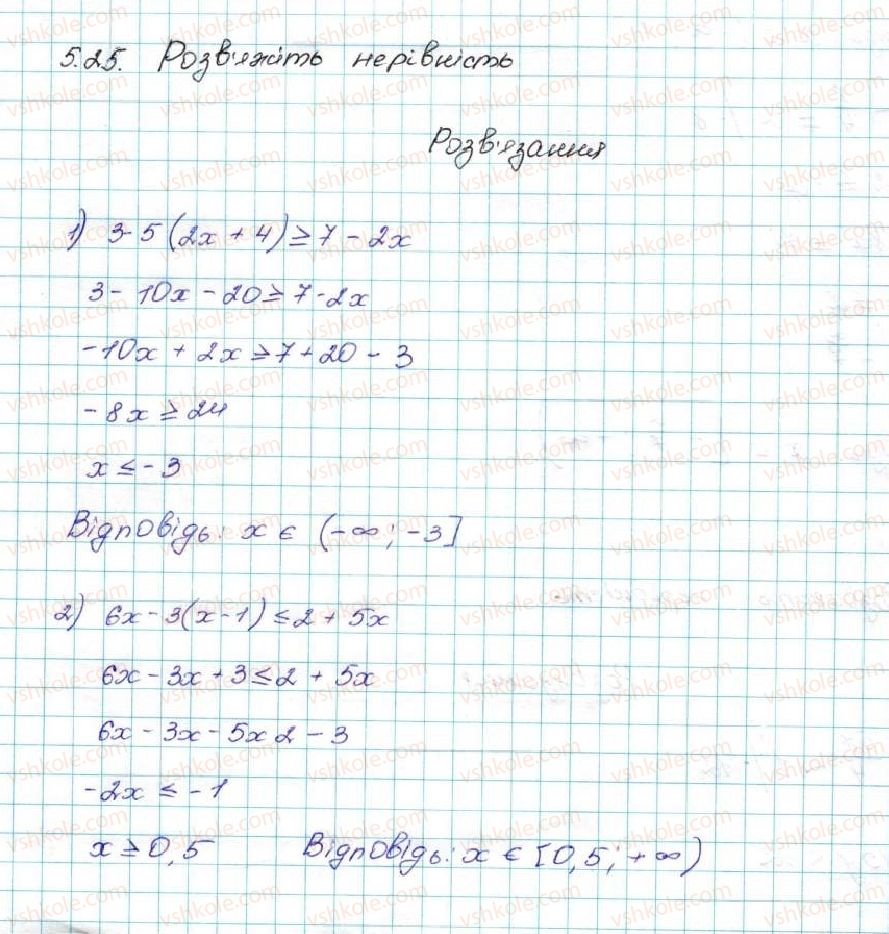 5.25. Розв'яжіть нерівність
Розв'язання
1) 3-5(2x+4)≥7-2x
3-10x-20≥7-2x
-10x+2x≥7+20-3
-8x≥24
x≤-3
Відповідь: x є (-∞; -3]
2) 6x-3(x-1)≤2+5x
6x-3x+3≤2+5x
6x-3x-5x 2-3
-2x≤-1
x≥0,5 Відповідь: x є [0,5; +∞)